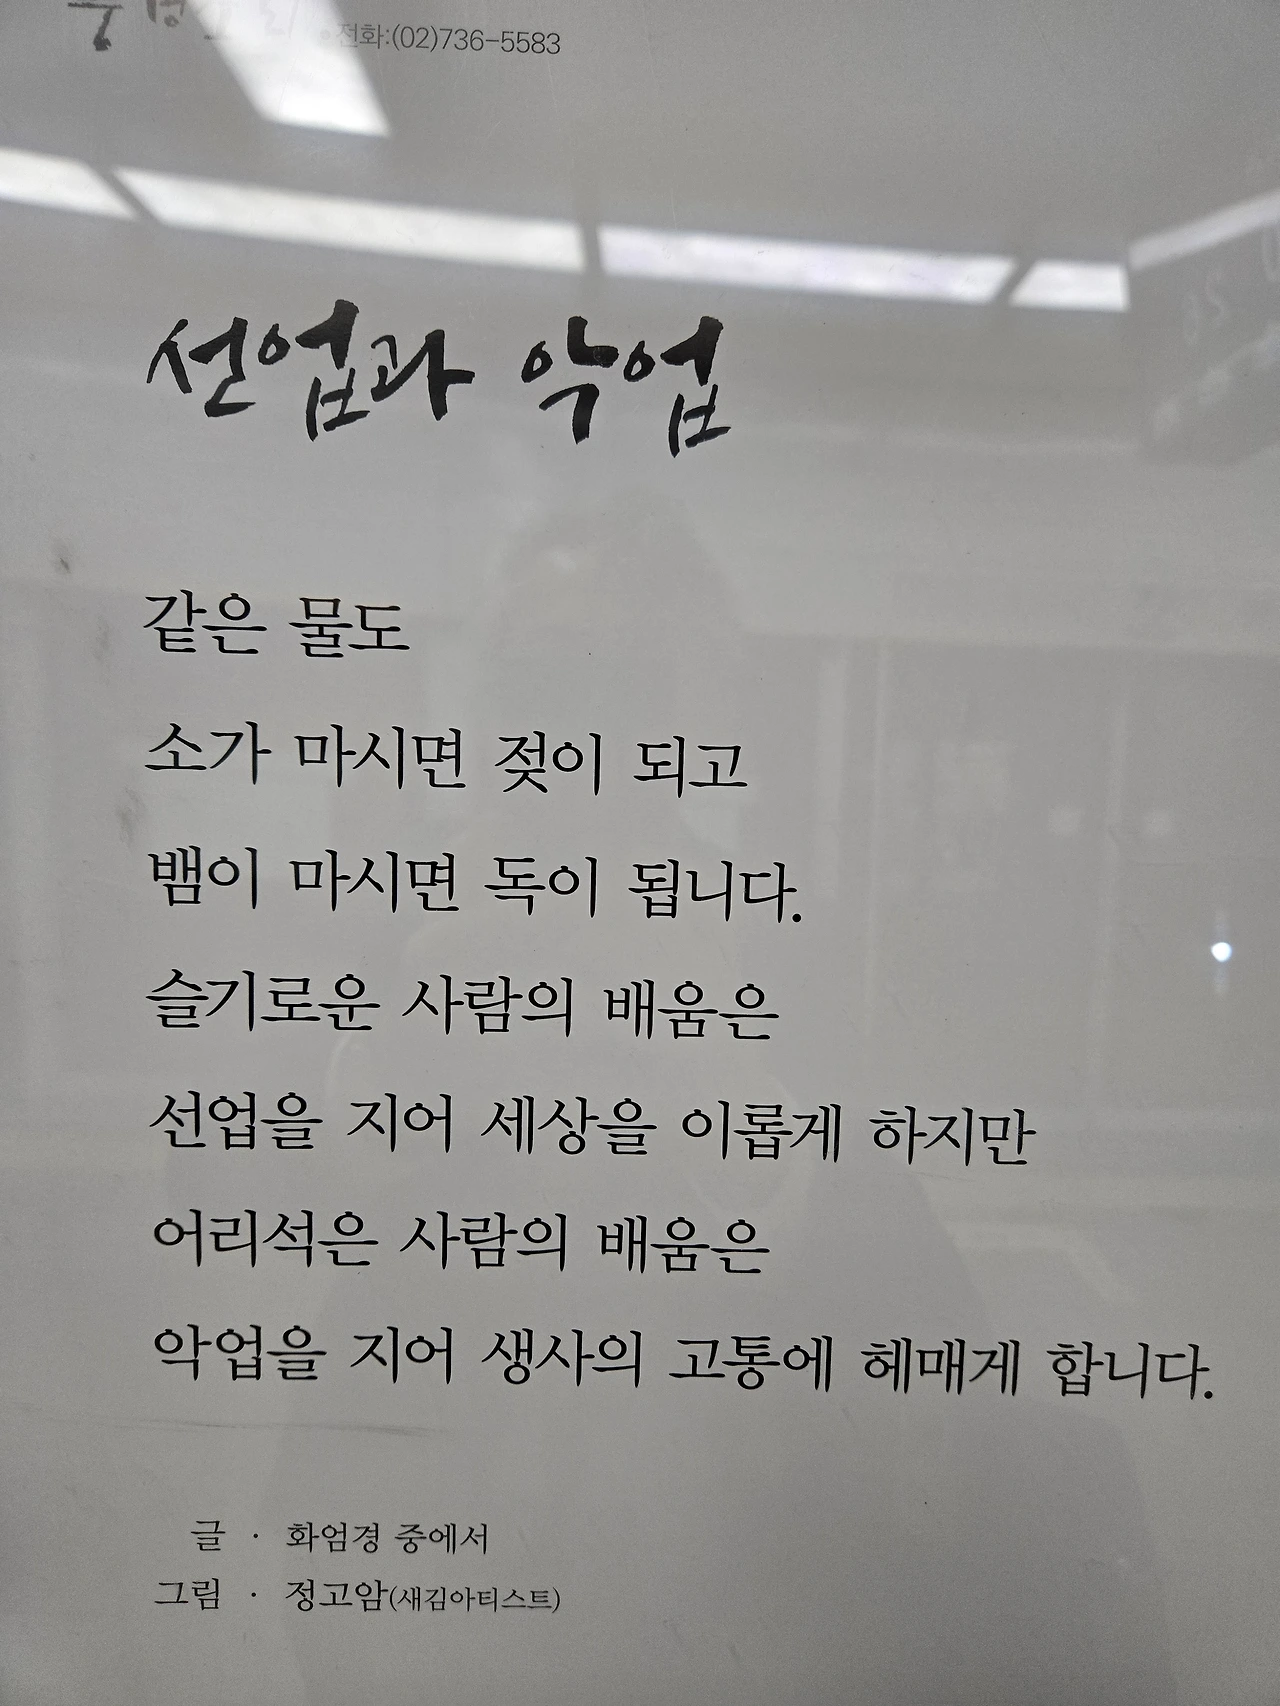 전화:(02)736-5583
선업과 악업
같은 물도
소가 마시면 젖이 되고
뱀이 마시면 독이 됩니다.
슬기로운 사람의 배움은
선업을 지어 세상을 이롭게 하지만
어리석은 사람의 배움은
악업을 지어 생사의 고통에 헤매게 합니다.
글 · 화엄경 중에서
그림 · 정고암(새김아티스트)